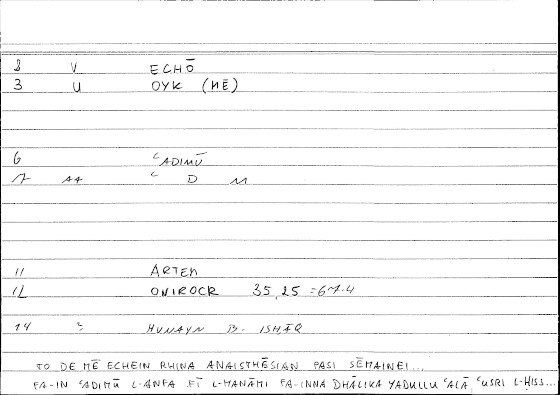 2 V ECHŌ
3 U OYK (MĒ)
6 ʿADIMŪ
7 AA ʿ D M
11 ARTEM
12 ONIROCR 35,25 =67.4
14 2 HUNAYN B- ISḤĀQ
TO DE MĒ ECHEIN RHINA ANAISTHĒSIAN PASI SĒMAINEI...
FA-IN ʿADIMŪ L-ANFA FĪ L-MANĀMI FA-INNA DHĀLIKA YADULLU ʿALĀ ʿUSRI L-ḤISS...